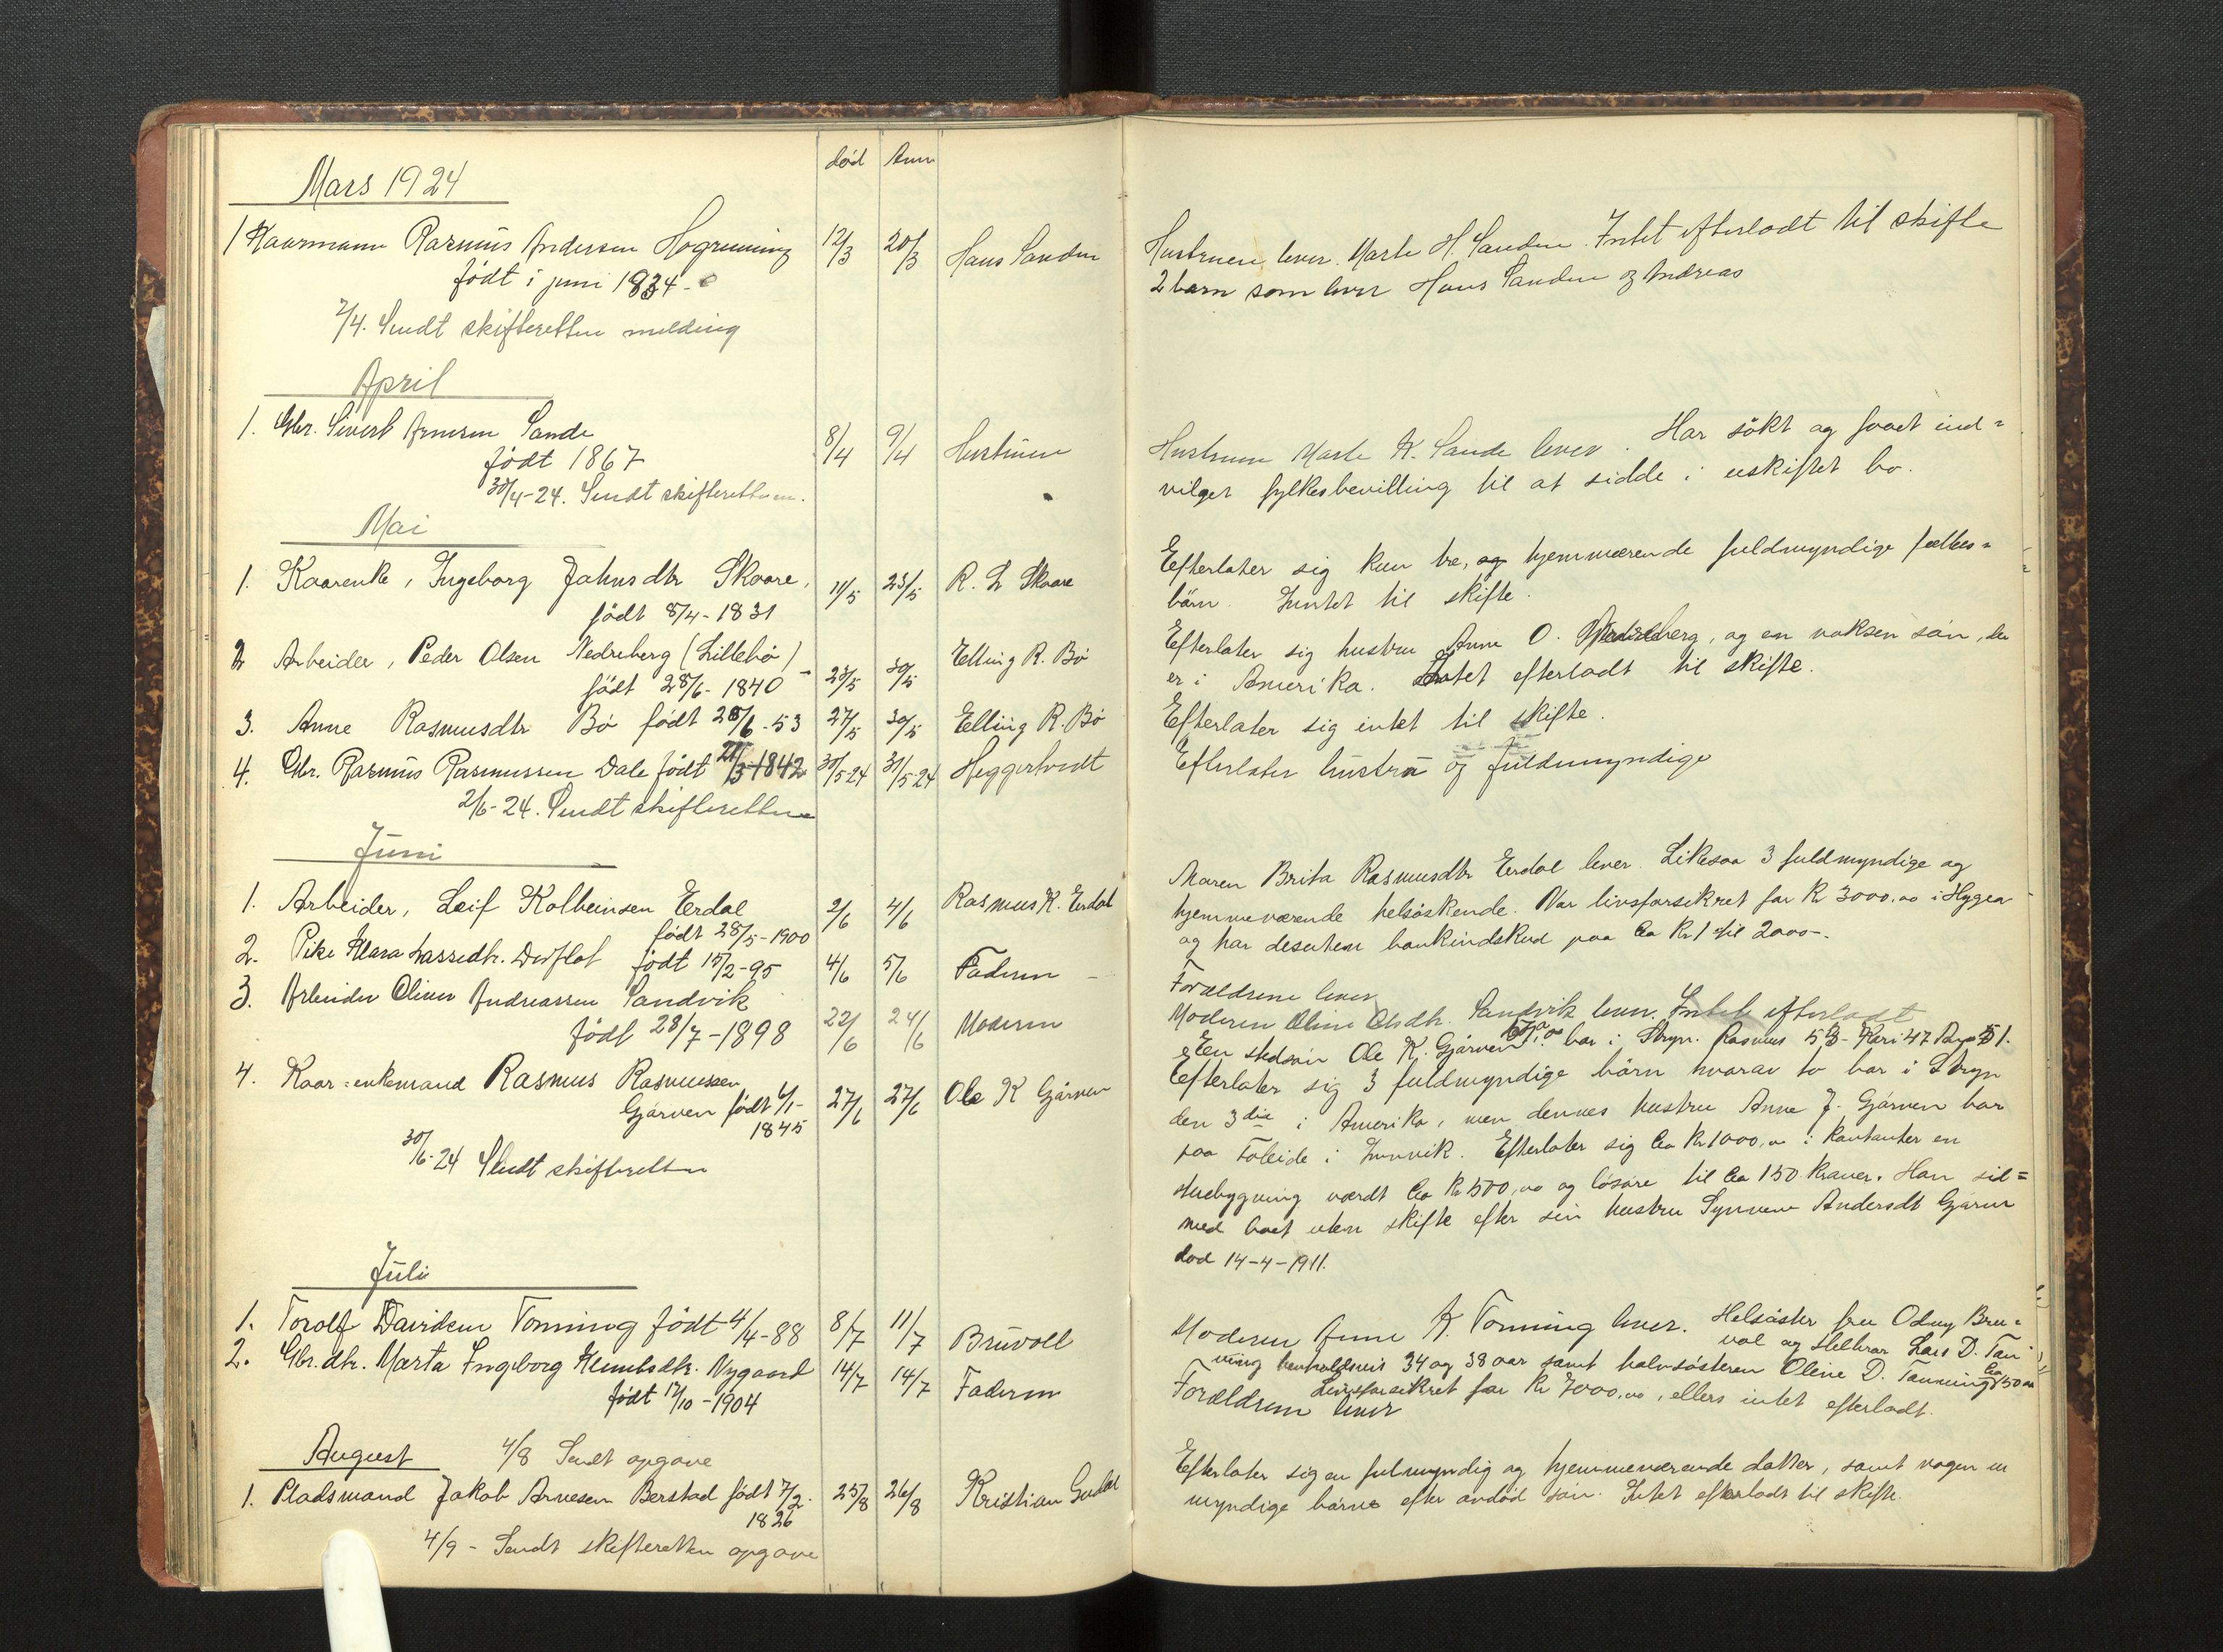 død Anm
Mars 1924
1 Kaarmann Rasmus Andersen Hogrenning 12/3 20/3 Hans Sanden
født i juni 1834 -
2/4. Sendt skifteretten melding
April
1. Gbr. Sivert Arnesen Sande 8/4 9/4 Hustruen
født 1867
30/4-24. Sendt skifteretten m.
Mai
1. Kaarenke, Ingeborg Jahnsdtr Skaare, 11/5 23/5 R. L Skaare
født 8/4-1831
2 Arbeider, Peder Olsen Nedreberg (Lillebø) - 23/5 30/5 Elling R. Bø
født 28/6-1840
3. Anne Rasmusdtr Bø født 28/6-53 27/5 30/5 Elling R. Bø
4. Gbr. Rasmus Rasmussen Dale født 21/3-1842 30/5-24 31/5-24 Heggertvedt
2/6-24. Sendt skifteretten
Juni
1. Arbeider, Leif Kolbeinsen Eerdal 2/6 4/6 Rasmus K. Eerdal
født 28/5-1900
2. Pike Klara Lassedtr. Dwflot født 15/2-95 4/6 5/6 Faderen -
3. Arbeider Oliver Andreassen Sandvik
født 28/7-1898 22/6 24/6 Moderen
4. Kaar-enkemand Rasmus Rasmussen
Gjørven født 6/1- 27/6 27/6 Ole K Gjørven
1845
30/6-24 Sendt skifteretten
Juli
1. Torolf Davidsen Tonning født 4/4-88 8/7 11/7 Bruvoll
2. Gbr. dtr. Marta Ingeborg Klemetsdtr. Nygaard 14/7 14/7 Faderen
født 12/10-1904
August 4/8 Sendt opgave
1. Pladsmand Jakob Arnesen Berstad født 7/2- 25/8 26/8 Kristian Gudal
1826
4/9 - Sendt skifteretten opgave
Hustruen lever. Marte H. Sanden. Intet efterladt til skifte
2 barn som lever Hans Sanden og Andreas
Hustruen Marte K. Sande lever. Har søkt og faaet ind=
vilget fylkesbevilling til at sidde i uskiftet bo.
Efterlater sig kun tre, og hjemmeværende fuldmyndige fælles=
børn. Inntet til skifte.
Efterlater sig hustru Anne O. Nedreberg, og en voksen søn, der
er i Amerika. Intet efterladt til skifte.
Efterlater sig intet til skifte.
Efterlater hustru og fuldmyndige
Maren Brita Rasmusdtr Eerdal lever. Likesaa 3 fuldmyndige og
hjemmeværende helsøskende. Var livsforsikret for Kr 3000,00 i Hygea
og har desuten bankindskud paa Ca Kr 1 til 2000-.
Forældrene lever
Moderen Oline Olsdtr. Sandvik lever. Intet efterladt
En stedsøn Ole K. Gjørven bor i Stryn. Rasmus 53 - Kari 47 51.
Efterlater sig 3 fuldmyndige børn hvorav to bor i Stryn
den 3die i Amerika, men dennes hustru Anne J. Gjørven bor
paa Faleide i Innvik. Efterlater sig Ca Kr 1000,00 i kontanter en
stuebygning værdt Ca Kr 500,00 og løsøre til Ca 150 kroner. Han sid=
med boet uten skifte efter sin hustru Synneve Andersdt Gjørven
død 14-4-1911.
Moderen Anne K. Tonning lever. Helsøster fru Odny Bru=
vol og Helbror Lars D. Ton
ning henholdsvis 34 og 38 aar samt halvsøsteren Oline D. Tonning Ca 50 aar
Livsforsikret for Kr 7000,00, ellers intet efterladt.
Forældrene lever
Efterlater sig en fulmyndig og hjemmeværende datter, samt nogen u
myndige børne efter avdød søn. Intet efterladt til skifte.